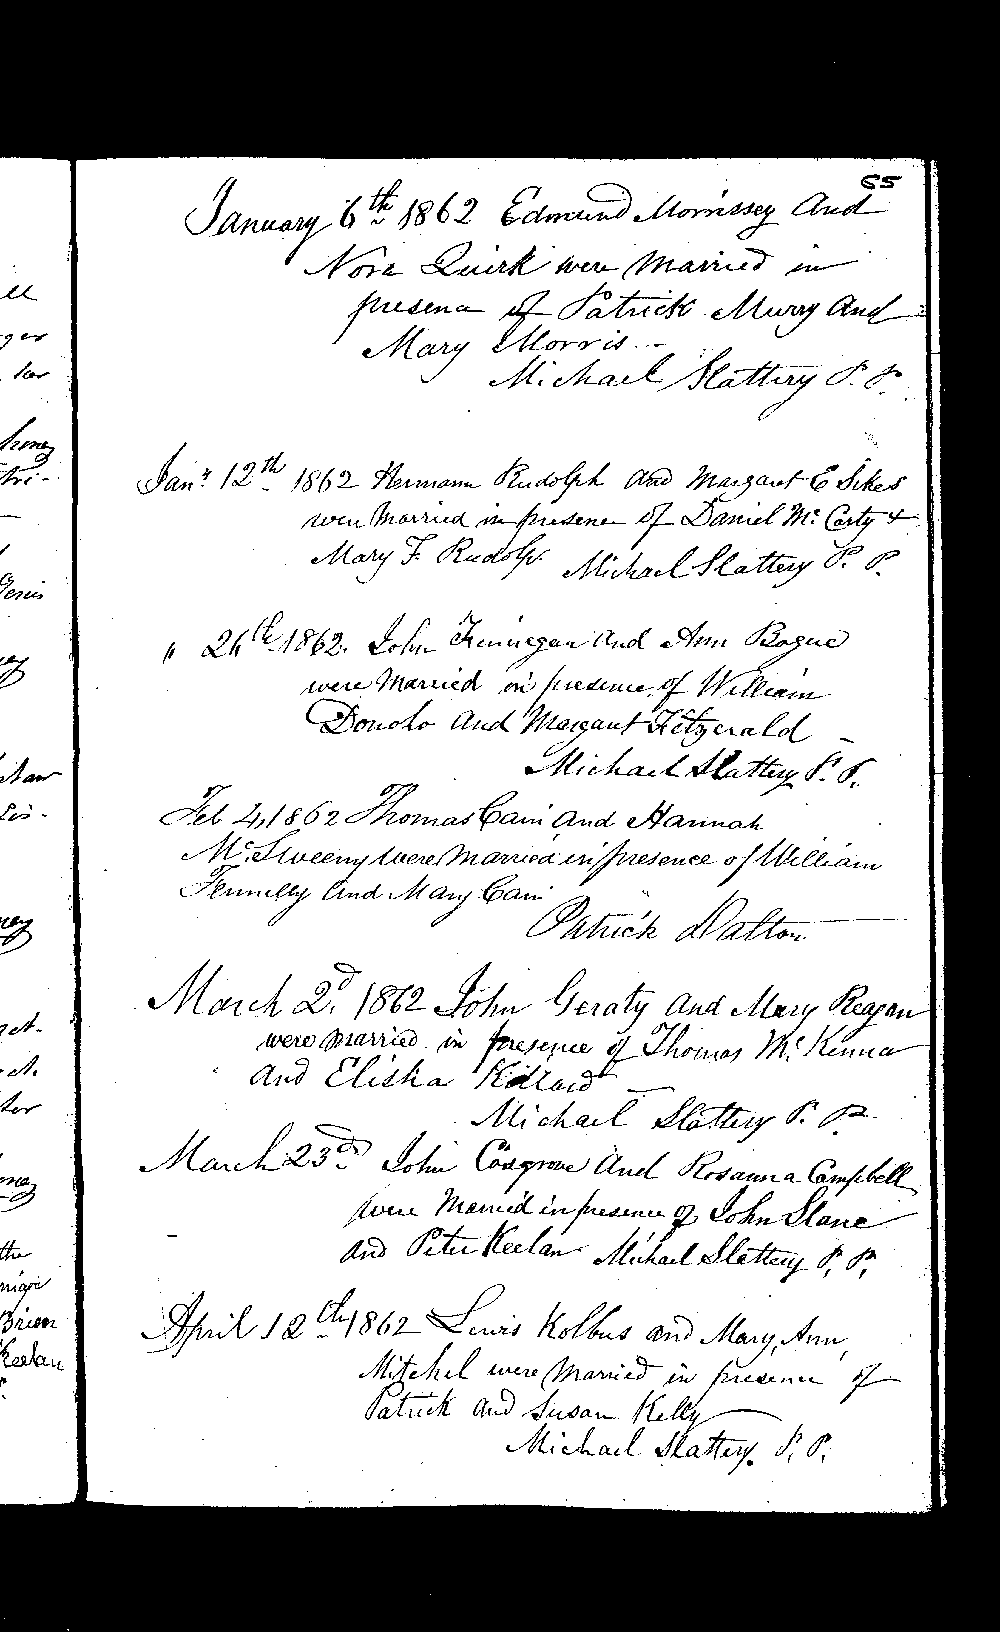 65
January 6th 1862 Edmund Morrissey And
Nora Quirk were Married in
presence of Patrick Murry And
Mary Morris
Michael Slattery P. P.
Jany 12th 1862 Hermann Rudolph and Margaret E Sikes
were Married in presence of Daniel Mc Carty &
Mary F. Rudolp. Michael Slattery P. P.
" 26th 1862. John Finnegan and Ann Bogue
were Married in presence of William
Donoho And Margaret Fitzgerald
Michael Slattery P. P.
Feb 4, 1862 Thomas Cain and Hannah
Mc. Sweeny were Married in presence of William
Fennelly and Mary Cain
Patrick Dalton
March 2d. 1862 John Geraty and Mary Reagan
were married in presence of Thomas Mc Kenna
And Elisha
Michael Slattery P. P.
March 23d John Cosgrove And Rosanna Campbell
were Married in presence of John Slane
and Peter Keelan Michael Slattery P. P.
April 12th 1862 Lewis Kolbus and Mary Ann
Mitchel were Married in presence of
Patrick and Susan Kelly
Michael Slattery. P. P.